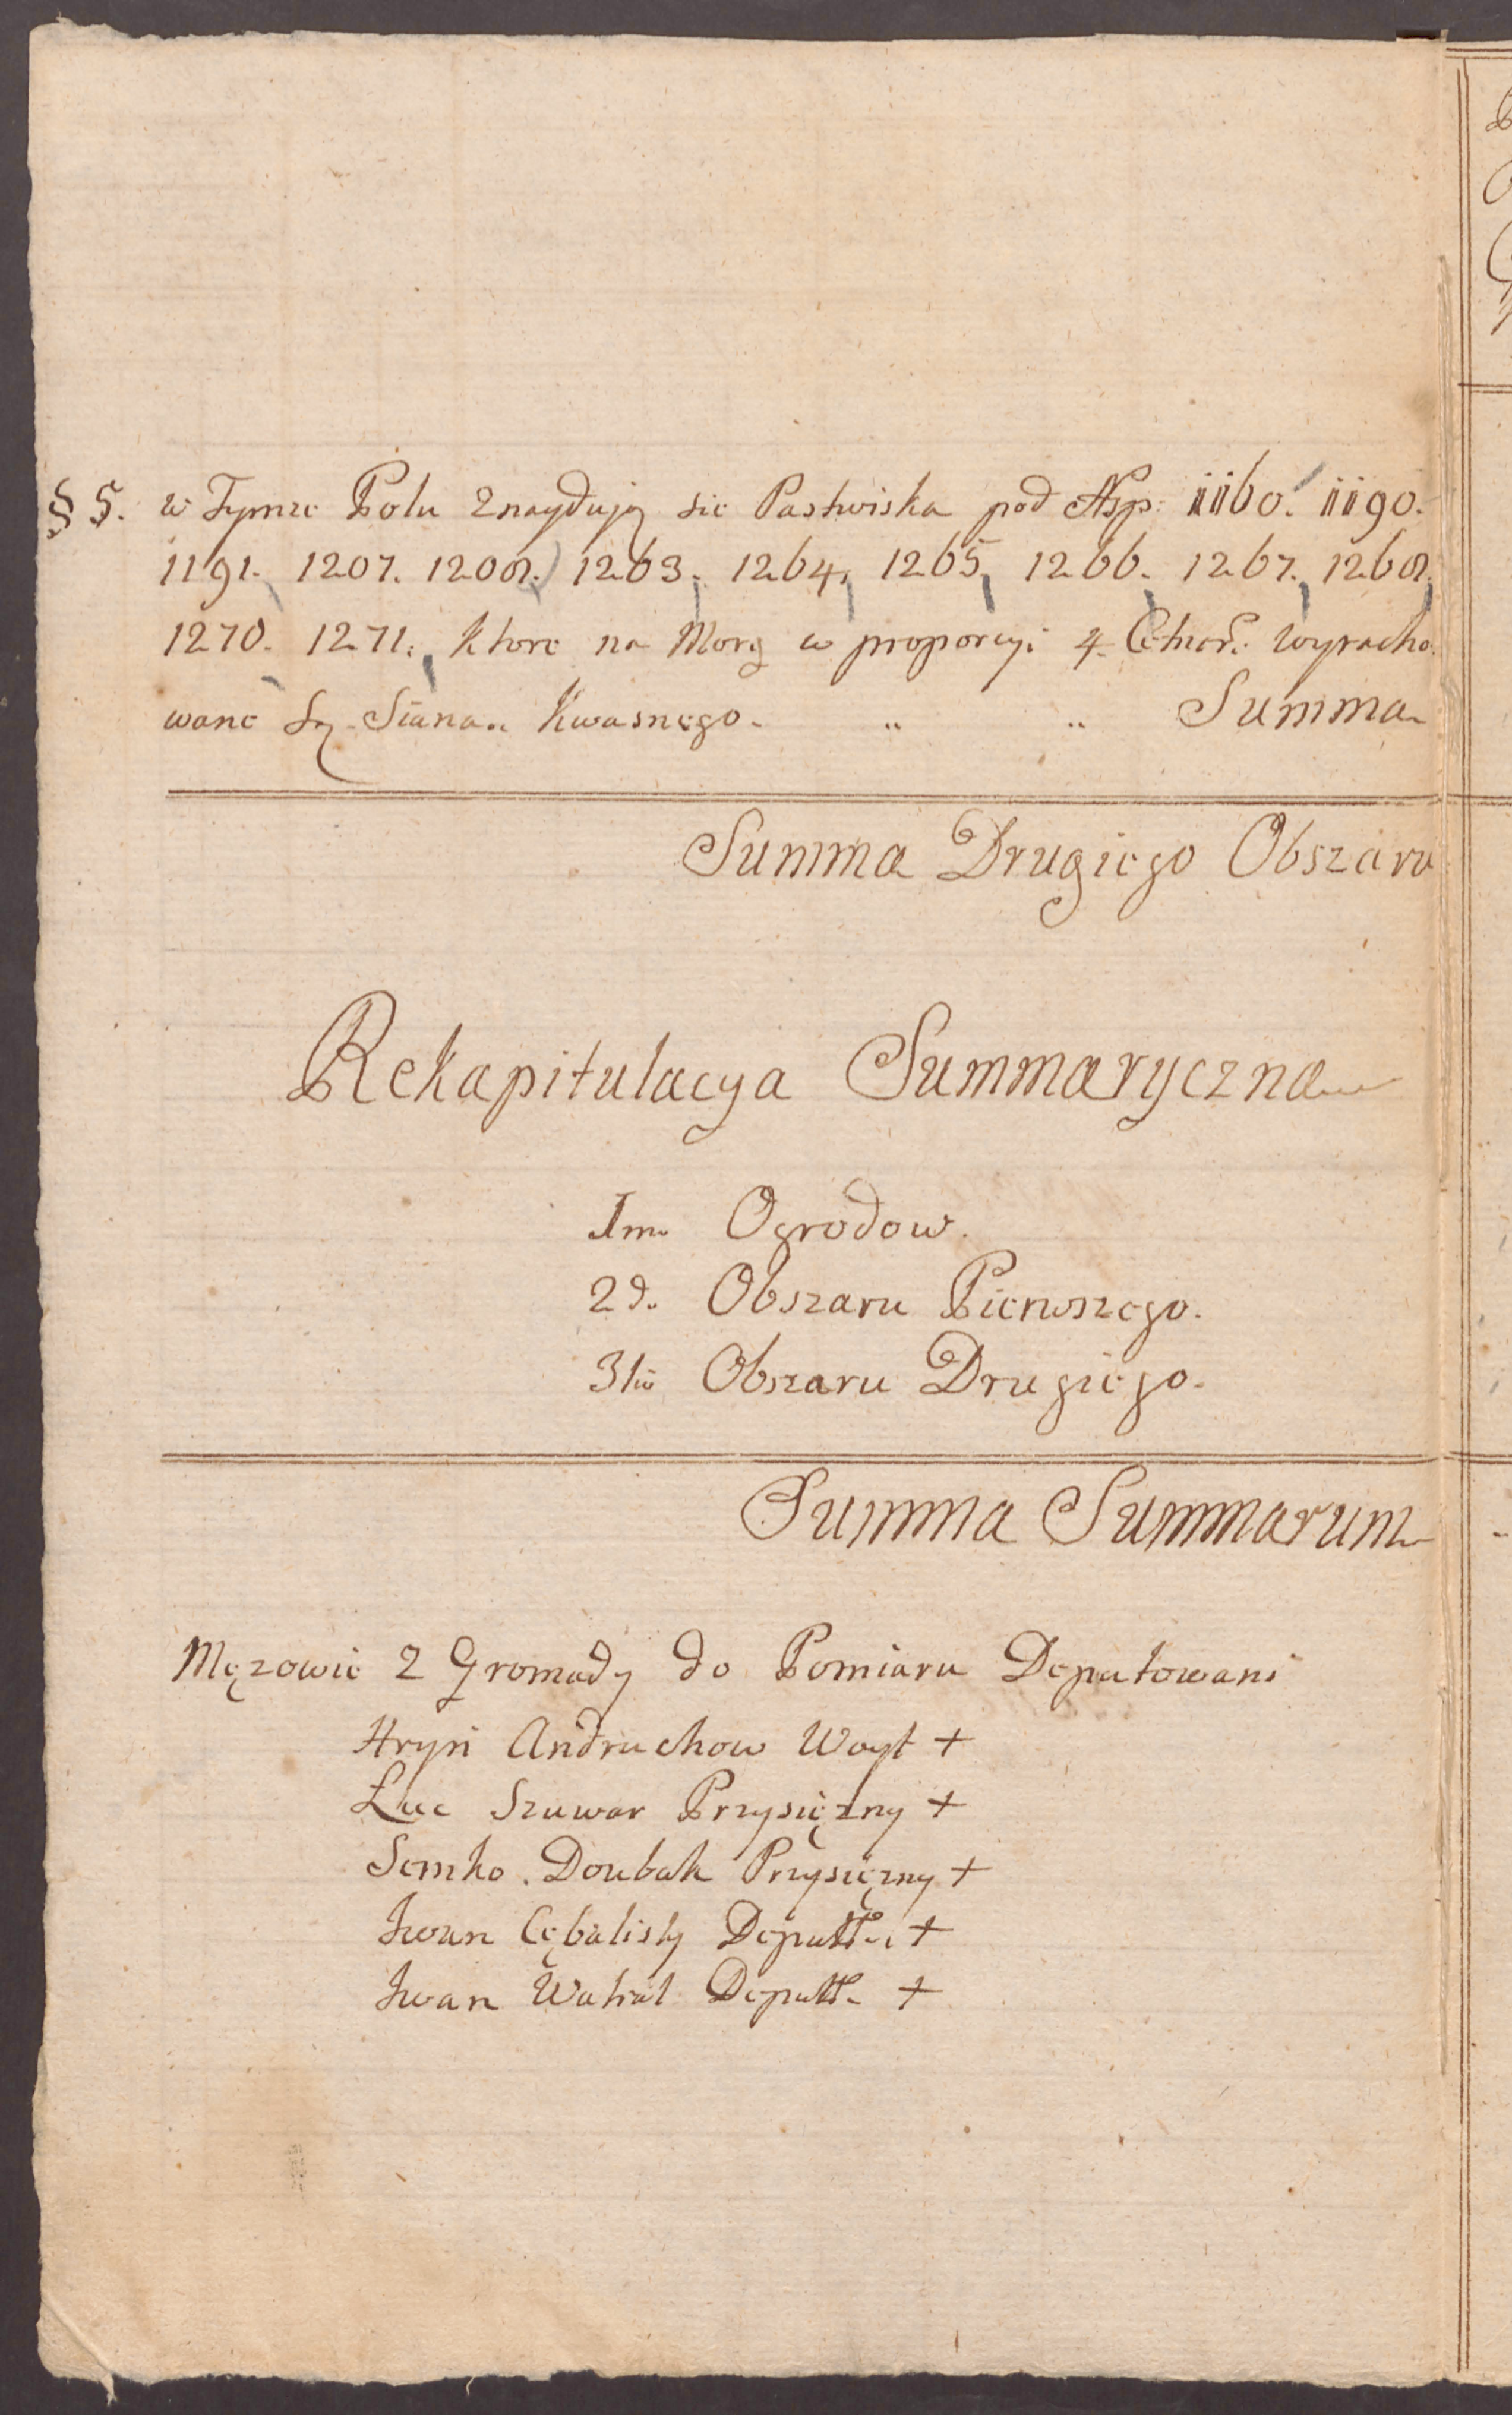 § 5. w Tymze Polu Znaydują sie Pastwiska pod Nsp: 1160. 1190.
1191. 1207. 1208. 1263. 1264. 1265. 1266. 1267. 1268.
1270. 1271. Ktore na Morg w proporcyi 4. Cetnar: wyracho
wane Są Siana Kwasnego. " " Summa
Summa Drugiego Obszaru
Rekapitulacya Summaryczna
1mo Ogrodow.
2do Obszaru Pierwszego.
3tio Obszaru Drugiego.
Summa Summarum
Męzowie Z Gromady do Pomiaru Deputowani
Hryń Andruchow Woyt +
Łuc Szuwar Przysięzny +
Semko Doubak Przysięzny +
Iwan Deputt. +
Iwan Deputt. +